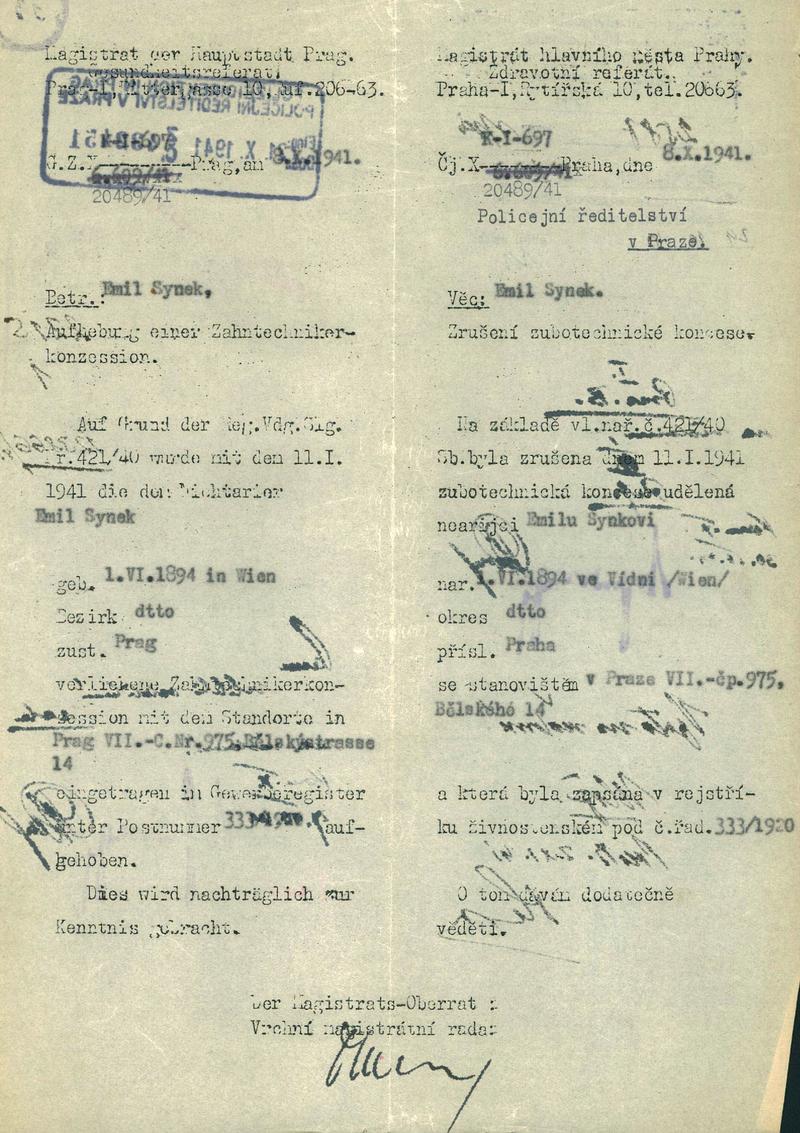 Magistrat der Hauptstadt Prag.
Gesundheitsreferat.
Prag-I, 10, 206-63.
G.Z.X Prag, am 8.X.1941.
20489/41
Betr.: Emil Synek,
Aufhebung einer Zahntechniker-
konzession.
Auf Grund der Reg.Vdg.Slg.
Nr.421/40 wurde mit dem 11.I.
1941 die dem Nichtarier
Emil Synek
geb. 1.VI.1894 in Wien
Bezirk dtto
zust. Prag
verliehene Zahntechnikerkon-
zession mit dem Standorte in
Prag VII.-C.Nr.975, Bělskýstrasse
14
eingetragen im Gewerberegister
unter Postnummer 333/1920. auf-
gehoben.
Dies wird nachträglich zur
Kenntnis gebracht.
Magistrát hlavního města Prahy.
Zdravotní referát.
Praha-I, Rytířská 10, tel.20663.
K-I-697
Čj.X Praha, dne 8.X.1941.
20489/41
Policejní ředitelství
v Praze.
Věc: Emil Synek.
Zrušení zubotechnické koncese.
Na základě vl.nař.č.421/40
Sb.byla zrušena dnem 11.I.1941
zubotechnická koncese udělená
nearijci Emilu Synkovi
nar. 1.VI.1894 ve Vídni /Wien/
okres dtto
přísl. Praha
se stanovištěm v Praze VII.-čp.975,
Bělského 14
a která byla zapsána v rejstří-
ku živnostenském pod č.řad.333/1920
O tom dávám dodatečně
věděti.
Der Magistrats-Oberrat :
Vrchní magistrátní rada: